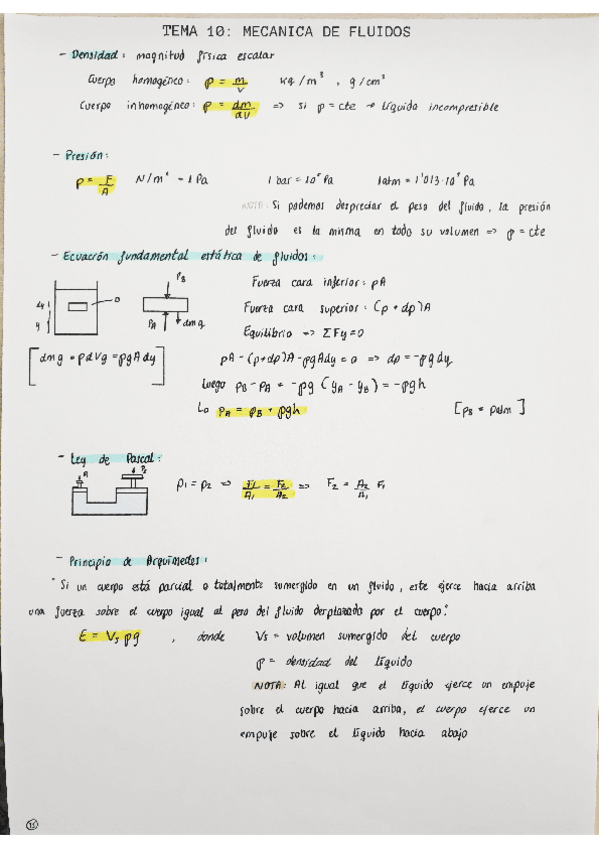 TEMA 10: MECANICA DE FLUIDOS
- Densidad: magnitud física escalar
Cuerpo homogéneo: ρ = m/V kg/m³, g/cm³
Cuerpo inhomogéneo: ρ = dm/dV => si ρ = cte → líquido incompresible
- Presión:
P = F/A N/m² = 1 Pa 1 bar = 10⁵ Pa 1atm = 1'013·10⁵ Pa
NOTA: Si podemos despreciar el peso del fluido, la presión
del fluido es la misma en todo su volumen => p = cte
- Ecuación fundamental estática de fluidos:
Fuerza cara inferior: pA
Fuerza cara superior: (p + dp)A
Equilibrio => ΣFy = 0
[dmg = ρdVg = ρgAdy] pA - (p+dp)A - ρgAdy = 0 => dp = -ρgdy
Luego pB - pA = -ρg (yA - yB) = -ρgh
Lo pA = pB + ρgh [pB = patm]
- Ley de Pascal:
P1 = P2 => F1/A1 = F2/A2 => F2 = A2/A1 F1
- Principio de Arquímedes:
"Si un cuerpo está parcial o totalmente sumergido en un fluido, este ejerce hacia arriba
una fuerza sobre el cuerpo igual al peso del fluido desplazado por el cuerpo."
E = Vs ρg, donde Vs = volumen sumergido del cuerpo
ρ = densidad del líquido
NOTA: Al igual que el líquido ejerce un empuje
sobre el cuerpo hacia arriba, el cuerpo ejerce un
empuje sobre el líquido hacia abajo